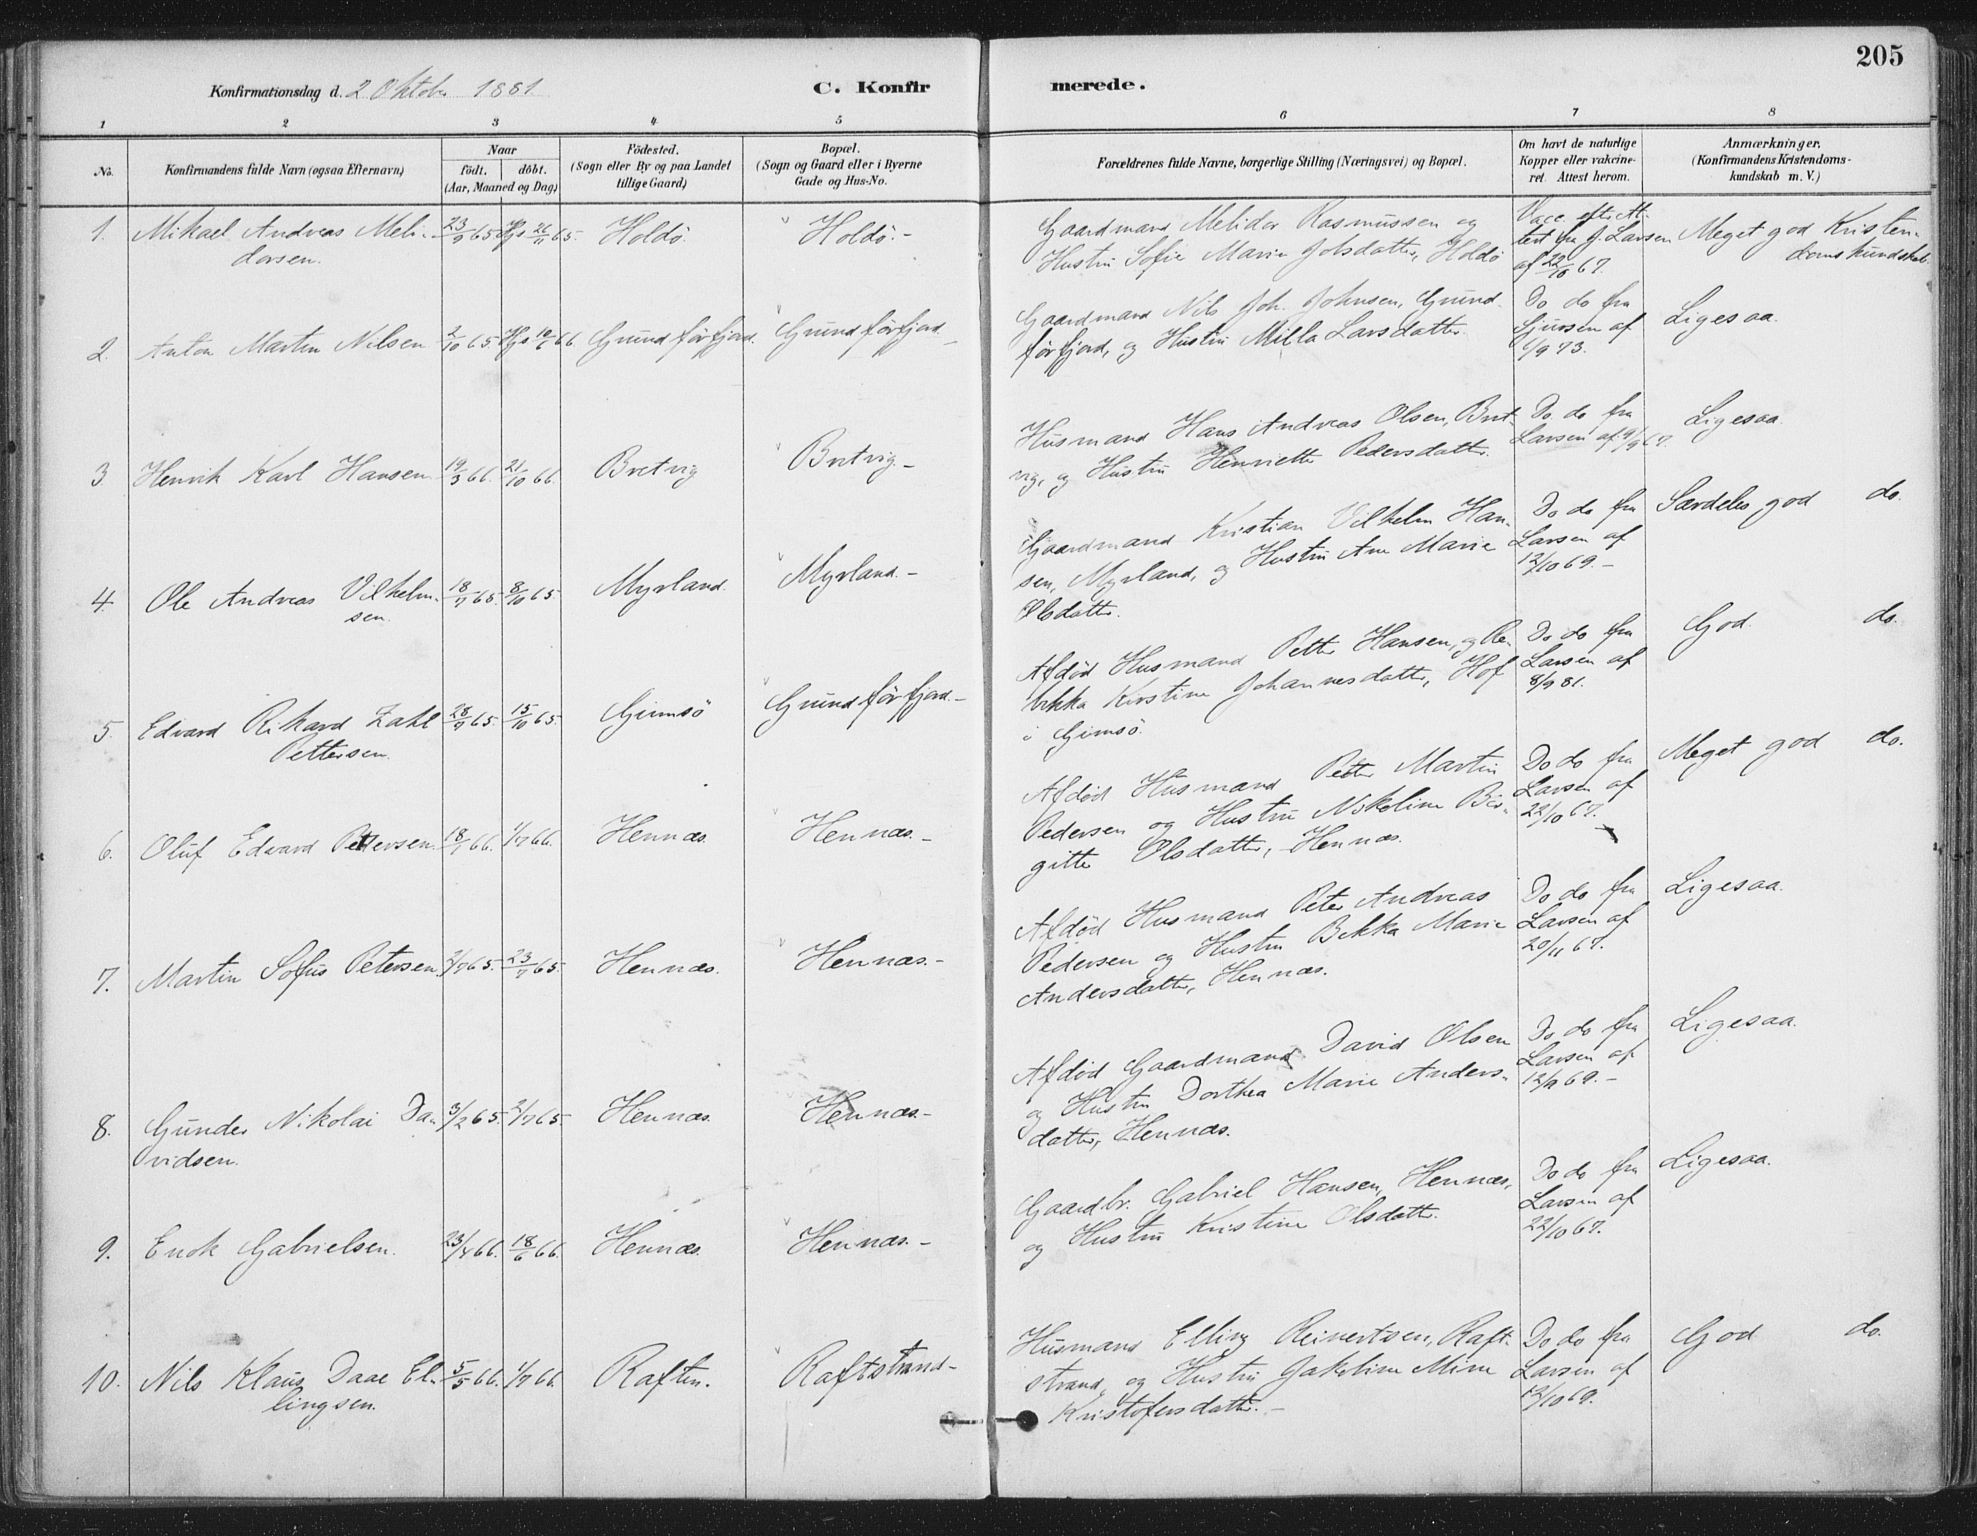 205
Konfirmationsdag d. 2 Oktober 1881.
C. Konfirmerede.
1 2 3 4 5 6 7 8
No.
Konfirmandens fulde Navn (ogsaa Efternavn)
Naar
födt. döbt.
(Aar, Maaned og Dag)
Födested.
(Sogn eller By og paa Landet
tillige Gaard)
Bopæl.
(Sogn og Gaard eller i Byerne
Gade og Hus-No.
Forældrenes fulde Navne, borgerlige Stilling (Næringsvei) og Bopæl.
Om havt de naturlige
Kopper eller vakcine-
ret. Attest herom.
Anmærkninger.
(Konfirmandens Kristendoms-
kundskab m. V.)
1. Mikael Andreas Meli-
dorsen.
23/9 65. 26/11 65.
Holdö.
Holdö.-
Gaardmand Melidor Rasmussen og
Hustru Sofie Marie Jolsdatter, Holdö
Vacc. efter At-
test fra J. Larsen
af 22/10 67.
Meget god Kristen-
domskundskab.
2. Anton Martin Nilsen
2/10 65. 10/6 66
Grundförfjord.
Grundförfjord
Gaardmand Nils Joh. Johnsen, Grund-
förfjord, og Hustru Milla Larsdatter.
Do do fra
Sjursen af
1/9 73.
Ligesaa.
3. Henrik Karl Hansen.
19/3 66. 21/10 66.
Bretvig
Bretvig.-
Husmand Hans Andreas Olsen, Bret-
vig, og Hustru Henriette Pedersdatter.
Do do fra
Larsen af 9/9 67
Ligesaa.
4. Ole Andreas Vilhelm-
sen.
18/7 65. 8/10 65.
Myrland.
Myrland.-
Gaardmand Kristian Vilhelm Han-
sen, Myrland, og Hustru Ane Marie
Olsdatter.
Do do fra
Larsen af
12/10 69.-
Særdeles god do.
5. Edvard Rikard Zahl
Pettersen.
28/9 65. 15/10 65.
Gimsö
Grundförfjord.-
Afdød Husmand Petter Hansen, og Re-
bekka Kirstine Johannesdatter, Hof
i Gimsö.
Do do fra
Larsen af
8/9 81.
God. do.
6. Oluf Edvard Pettersen.
18/1 66. 1/7 66.
Hennæs.
Hennæs.-
Afdød Husmand Petter Martin
Pedersen og Hustru Nikoline Bir-
gitte Olsdatter, Hennæs.
Do do fra
Larsen af
22/10 67.
Meget god do.
7. Martin Sofus Petersen.
2/7 65. 23/7 65.
Hennæs.
Hennæs.-
Afdød Husmand Peter Andreas
Pedersen og Hustru Bekka Marie
Andersdatter, Hennæs.
Do do fra
Larsen af
20/11 67.
Ligesaa.
8. Gunder Nikolai Da-
vidsen.
3/2 65. 2/7 65.
Hennæs.
Hennæs.-
Afdød Gaardmand David Olsen
og Hustru Dorthea Marie Anders-
datter, Hennæs.
Do do fra
Larsen af
12/9 69.-
Ligesaa.
9. Enok Gabrielsen.
23/4 66. 18/6 66.
Hennæs.
Hennæs.-
Gaardbr. Gabriel Hansen, Hennæs,
og Hustru Kristine Olsdatter.
Do do fra
Larsen af
22/10 67.
Ligesaa.
10. Nils Klaus Daae El-
lingsen.
5/5 66. 1/7 66.
Raften.
Raftstrand-
Husmand Elling Reinertsen, Raft-
strand, og Hustru Jakoline Mine
Kristofersdatter.-
Do do fra
Larsen af
12/10 69.
God do.